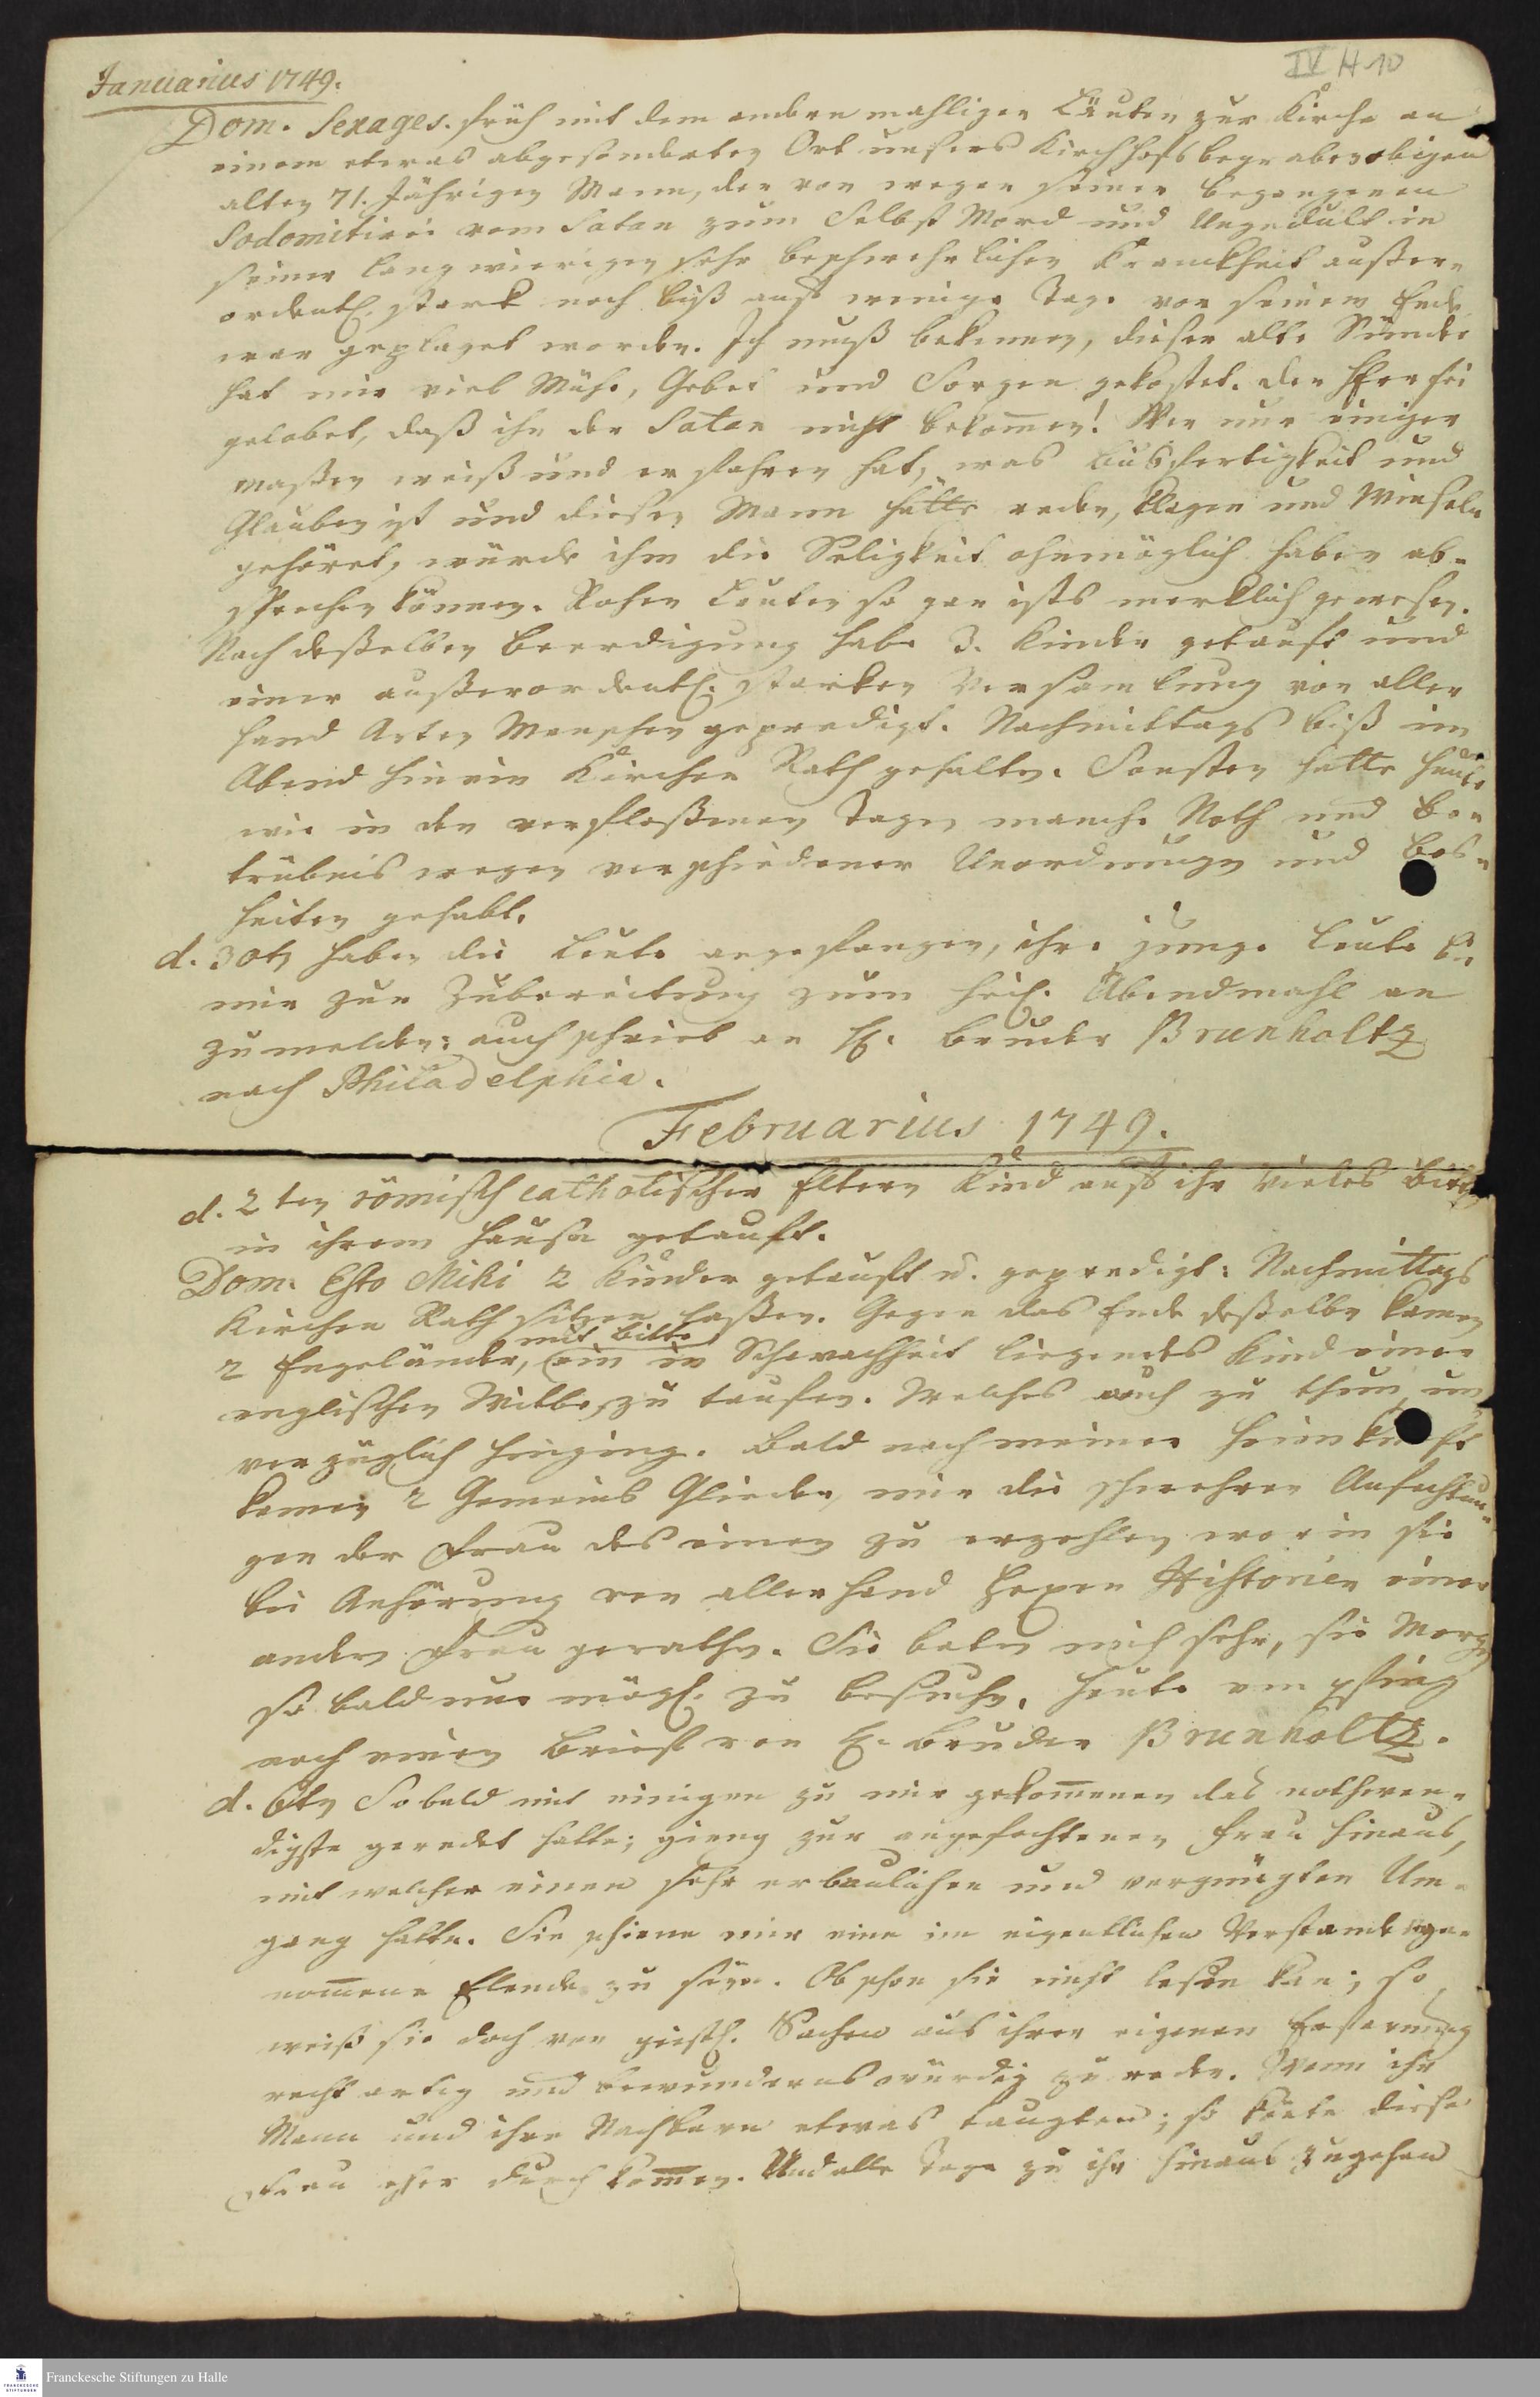 IV H 10
Januarius 1749.
Dom. Sexages. früh mit dem andern mahligen Läuten zur Kirche an
einem etwas abgesonderten Ort unsers Kirchhofs begraben obigen
alten 71. Jährigen Mann, der von wegen seiner begangenen
Sodomiterei vom Satan zum Selbst Mord und Ungedult in
seiner langwierigen sehr beschwehrlichen Kranckheit außer-
ordentl. starck noch biß auf wenige Tage vor seinem Ende
war geplaget worden. Ich muß bekennen, dieser alte Sünder
hat mir viel Mühe, Gebet und Sorgen gekostet. Der Herr sei
gelobet, daß ihn der Satan nicht bekom̅en! Wer nur einiger
maßen weiß und erfahren hat, was Bußfertigkeit und
Glauben ist und diesen Mann hätte reden, klagen und Winseln
gehöret, würde ihm die Seligkeit ohnmöglich haben ab-
sprechen können. Rohen Leuten so gar ists mercklich gewesen.
Nach deßelben Beerdigung habe 3. Kinder getauft und
einer außerordentl. starken Versamlung von aller
hand Arten Menschen geprediget. Nachmittags biß im
Abend hinein Kirchen Rath gehalten. Sonsten hatte heute
wie in den verfloßenen Tagen manche Noth und Be-
trübnis wegen verschiedener Unordnungen und Bos-
heiten gehabt.
d. 30ten haben die Leute angefangen, ihre junge Leute bei
mir zur Zubereitung zum heil. Abendmahl an
zumelden: auch schrieb an H. Bruder Brunholtz
nach Philadelphia.
Februarius 1749.
d. 2ten römisch catholischer Eltern Kind auf ihr vieles Bitten
in ihrem Hause getauft.
Dom. Esto Mihi 2 Kinder getauft u. geprediget: Nachmittags
Kirchen Rath sitzen laßen. Gegen das Ende deßelben kamen
mit Bitte
2 Engeländer, ein in Schwachheit liegendes Kind einer
englischen Witbe, zu taufen. Welches auch zu thun, un
verzüglich hinging. Bald nach meiner Heimkunft
kamen 2 Gemeins Glieder, mir die schwehren Anfechtun-
gen der Frau des einen zu erzehlen, worin sie
bei Anhörung von allerhand Hexen Historien einer
andern Frau gerathen. Sie baten mich sehr, sie Morgen
so bald nur mögl. zu besuchen. Heute empfing
noch einen Brief von H. Bruder Brunholtz.
d. 6ten So bald mit einigen zu mir gekom̅enen das nothwen-
digste geredet hatte; gieng zur angefochtenen Frau hinaus,
mit welcher einen sehr erbaulichen und vergnügten Um-
gang hatte. Sie schiene mir eine im eigentlichen Verstande ge-
nom̅ene Elende zu seyn. Obschon sie nicht lesen kan; so
weiß sie doch von geistl. Sachen aus ihrer eigenen Erfarung
recht artig und bewundernswürdig zu reden. Wenn ihr
Mann und ihre Nachbarn etwas taugten; so könte diese
Frau eher durch kom̅en. Und alle Tage zu ihr hinaus zugehen
Franckesche Stiftungen zu Halle